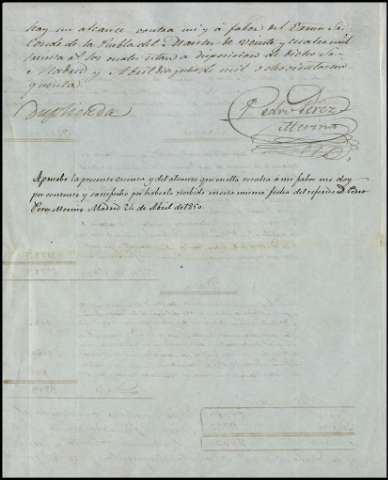 hay un alcance contra mi y á fabor del Exmo Sr.
Conde de la Puebla del Maestre de veinte y cuatro mil
los cuales estan a disposicion de dicho Sr.
Madrid y Abril de mil ochocientos cin
cuenta.
Duplicada
Pedro Perez
Merino
Apruebo la presente cuenta y del alcance que resulta á mi fabor me doy
por contento y satisfecho por haberlo recibido en esta misma fecha del referido D. Pedro
Perez Merino Madrid 24 de Abril de 1850.